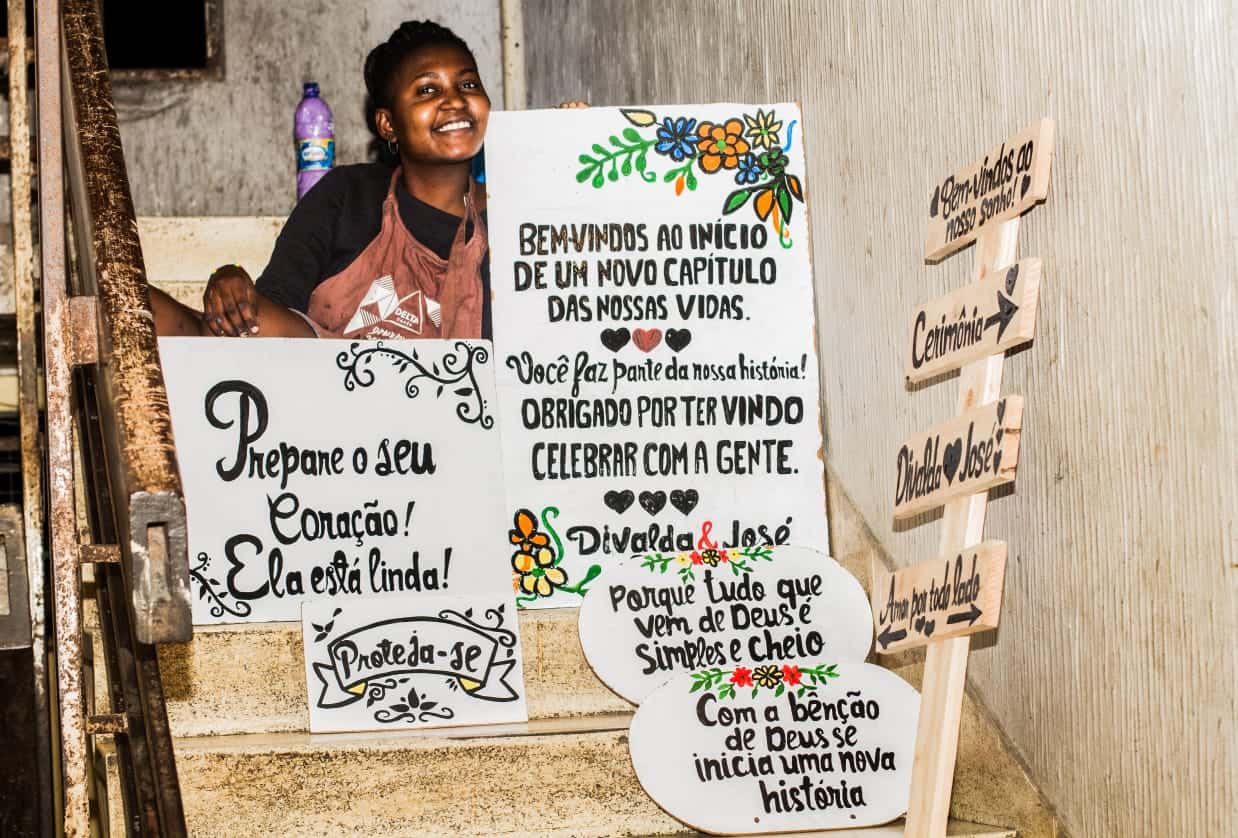 DELTA
BEM-VINDOS AO INÍCIO
DE UM NOVO CAPÍTULO
DAS NOSSAS VIDAS.
Você faz parte da nossa história!
OBRIGADO POR TER VINDO
CELEBRAR COM A GENTE.
Divalda & José
Prepare o seu
Coração!
Ela está linda!
Proteja-se
Porque tudo que
vem de Deus é
simples e cheio
Com a bênção
de Deus se
inicia uma nova
história
Bem-vindos ao
nosso sonho!
Cerimônia
Divalda José
Amor por todo lado